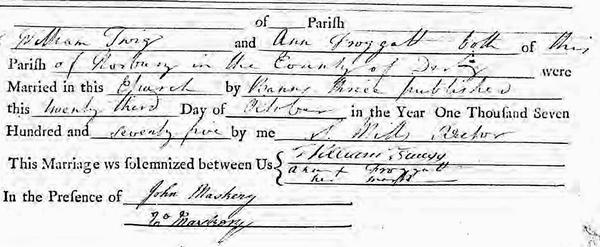 of Parish
William Twig and Ann Froggatt both of this
Parish of Norbury in the County of Derby were
Married in this Church by Banns thrice published
this twenty third Day of October in the Year One Thousand Seven
Hundred and seventy five by me A Mills Rector
This Marriage ws solemnized between Us William
Ann + Froggatt
her mark
In the Presence of John Maskery
Maskery